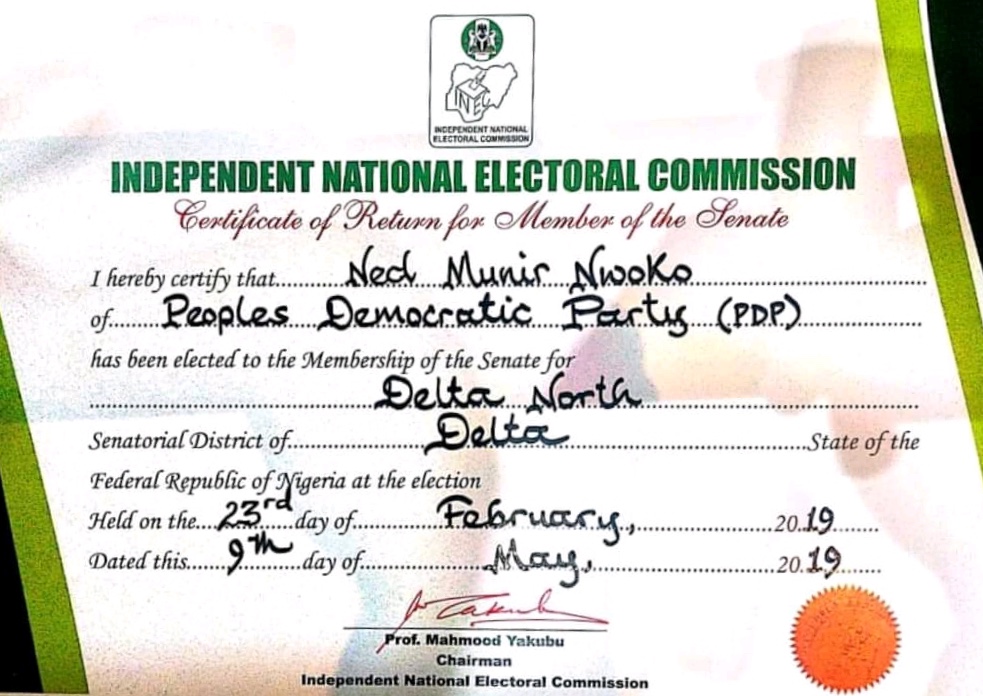 INEC
INDEPENDENT NATIONAL
ELECTORAL COMMISSION
INDEPENDENT NATIONAL ELECTORAL COMMISSION
Certificate of Return for Member of the Senate
I hereby certify that......Ned Munir Nwoko......
of......Peoples Democratic Party (PDP)......
has been elected to the Membership of the Senate for
......Delta North......
Senatorial District of......Delta......State of the
Federal Republic of Nigeria at the election
Held on the....23rd....day of......February,......2019......
Dated this....9th....day of......May,......2019......
Prof. Mahmood Yakubu
Chairman
Independent National Electoral Commission